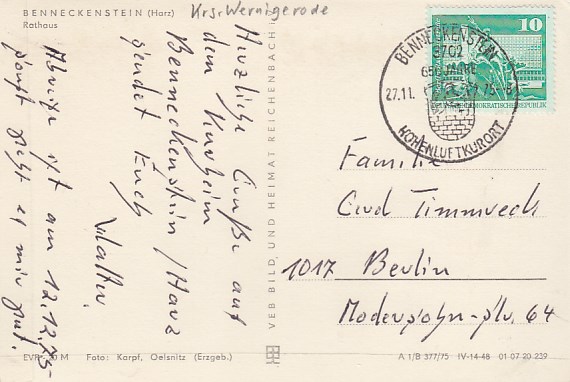 BENNECKENSTEIN (Harz)
Rathaus
Krs. Wernigerode
Herzliche Grüße aus
dem Kurheim
Benneckenstein/Harz
sendet Euch
Walter.
Abreise ist am 12.12.75
sonst geht es mir gut.
VEB BILD UND HEIMAT REICHENBACH
10
DEMOKRATISCHEN REPUBLIK
BENNECKENSTEIN
3702
650 JAHRE
27.11.
HÖHENLUFTKURORT
Familie
Curd Timmreck
1017 Berlin
Modersohn-Str. 64
EVP -,20 M Foto: Karpf, Oelsnitz (Erzgeb.)
A 1/B 377/75 IV-14-48 01 07 20 239